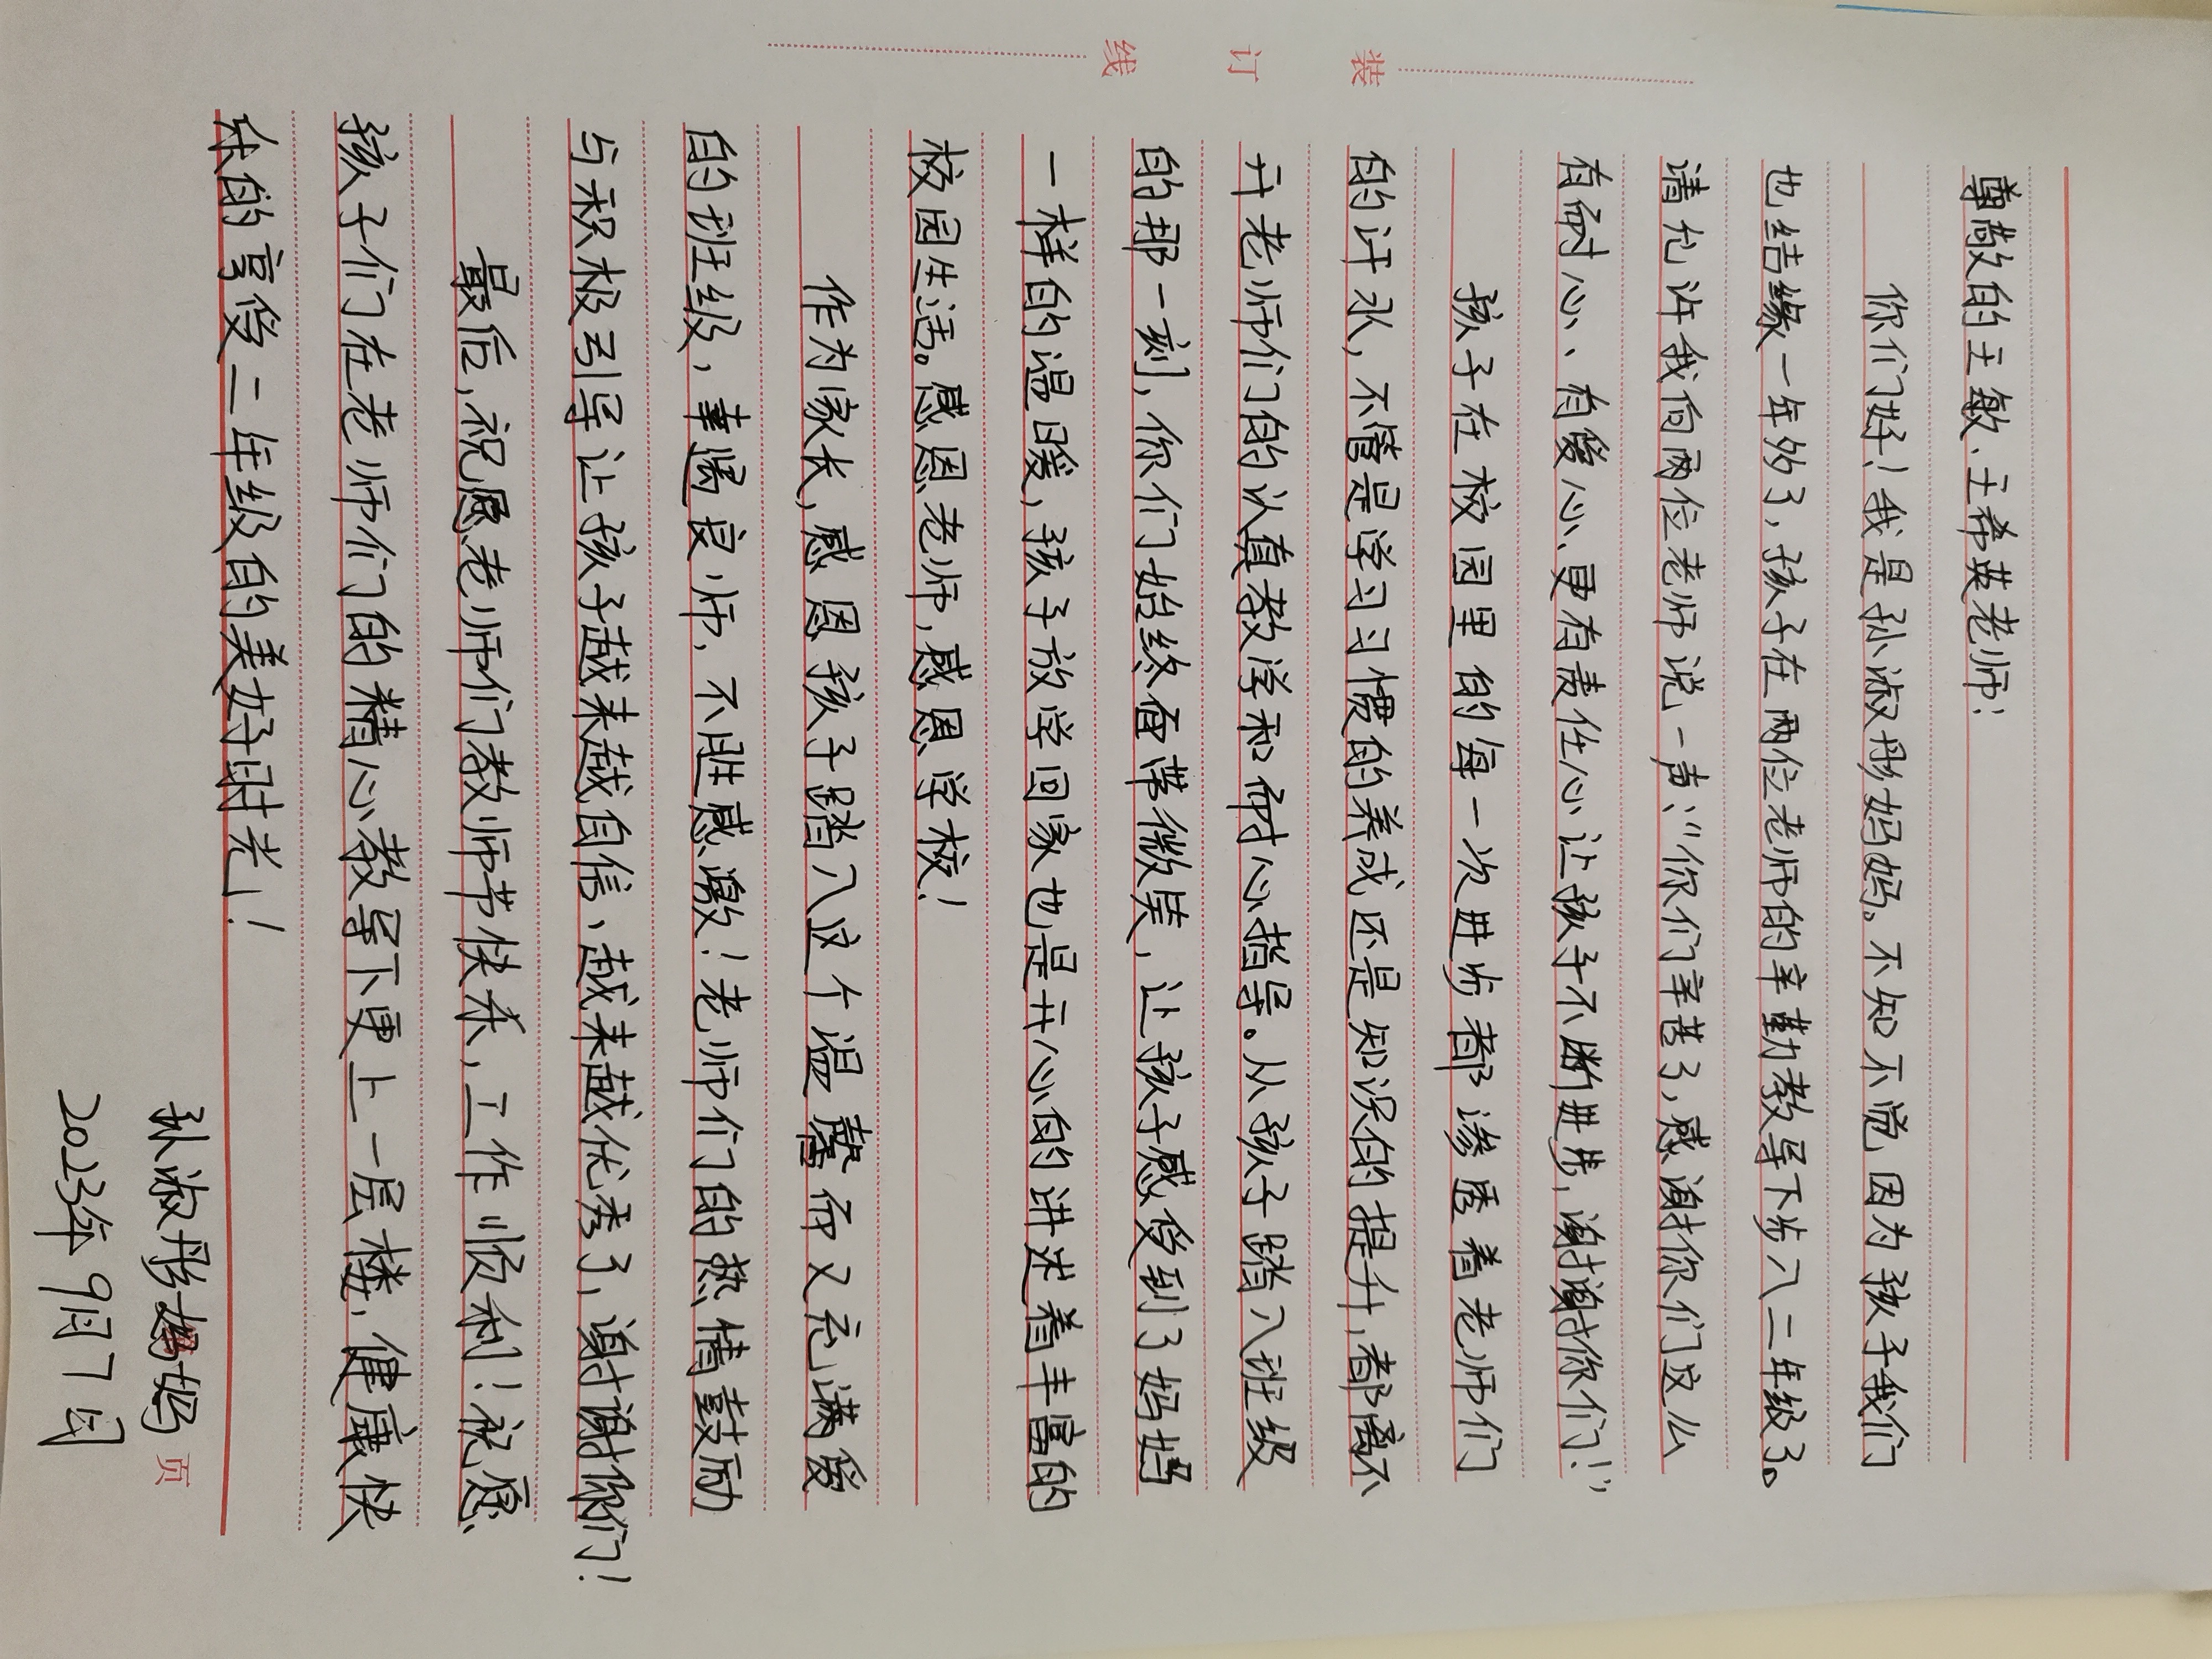 装 订 线
尊敬的王敏、王希英老师：
你们好！我是孙淑彤妈妈。不知不觉因为孩子我们
也结缘一年多了，孩子在两位老师的辛勤教导下步入二年级了。
请允许我向两位老师说一声：“你们辛苦了，感谢你们这么
有耐心、有爱心、更有责任心让孩子不断进步，谢谢你们！”
孩子在校园里的每一次进步都渗透着老师们
的汗水，不管是学习习惯的养成还是知识的提升，都离不
开老师们的认真教学和耐心指导。从孩子踏入班级
的那一刻，你们始终面带微笑，让孩子感受到了妈妈
一样的温暖，孩子放学回家也是开心的讲述着丰富的
校园生活。感恩老师，感恩学校！
作为家长，感恩孩子踏入这个温馨而又充满爱
的班级，幸遇良师，不胜感激！老师们的热情鼓励
与积极引导让孩子越来越自信、越来越优秀了，谢谢你们！
最后，祝愿老师们教师节快乐，工作顺利！祝愿
孩子们在老师们的精心教导下更上一层楼，健康快
乐的享受二年级的美好时光！
孙淑彤妈妈
页
2023年9月7日